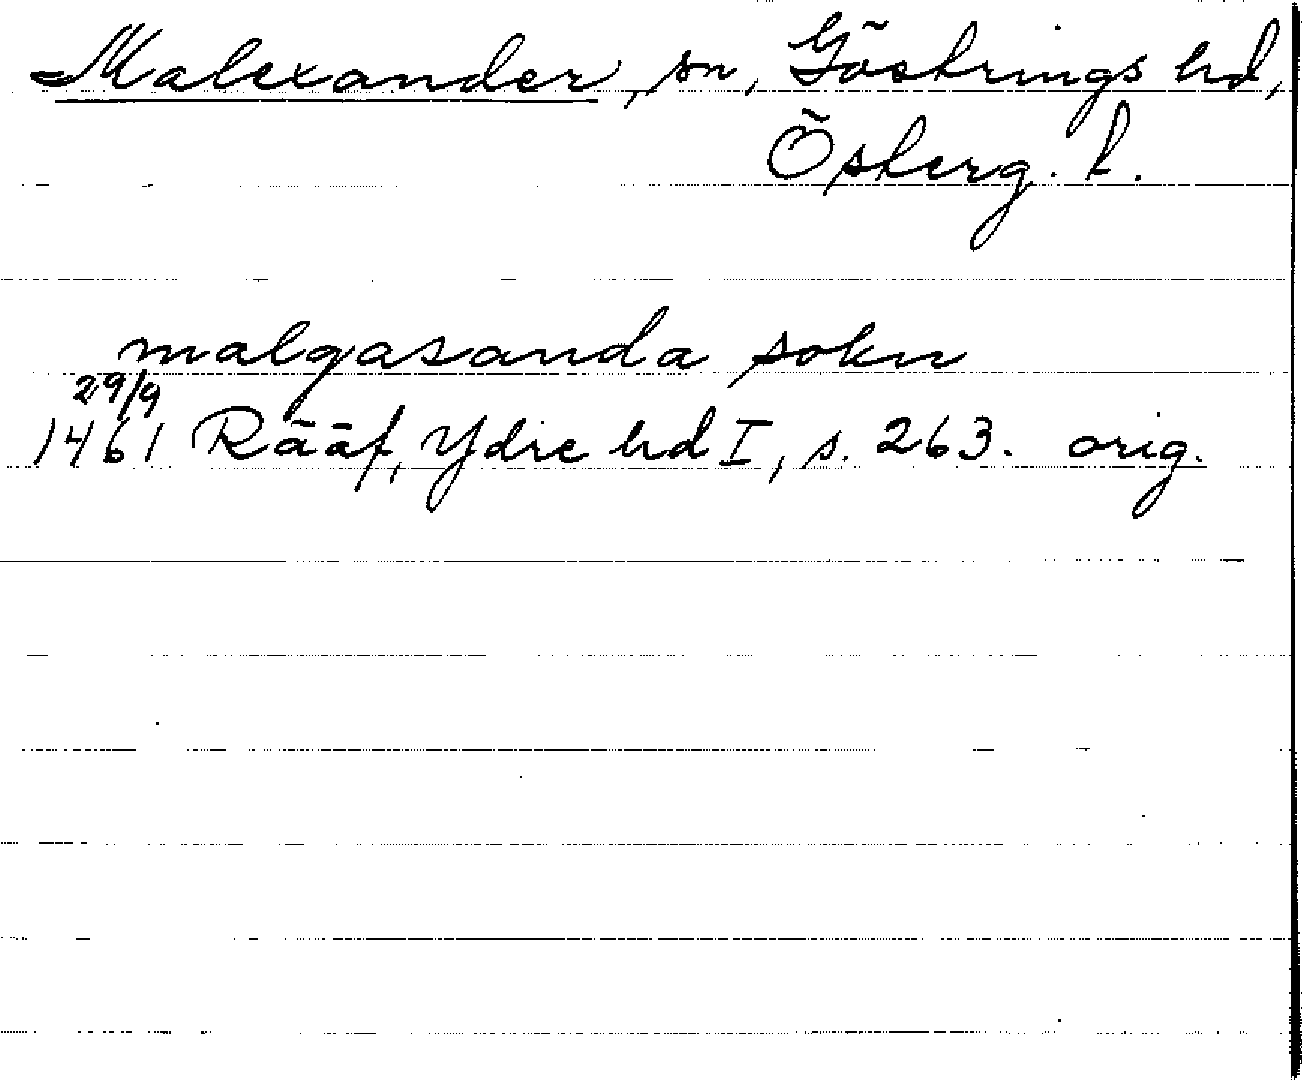 Malexander, sn, Göstrings hd,
Österg. l.
malgasanda sokn
29/9
1461 Rääf, Ydre hd I, s. 263. orig.